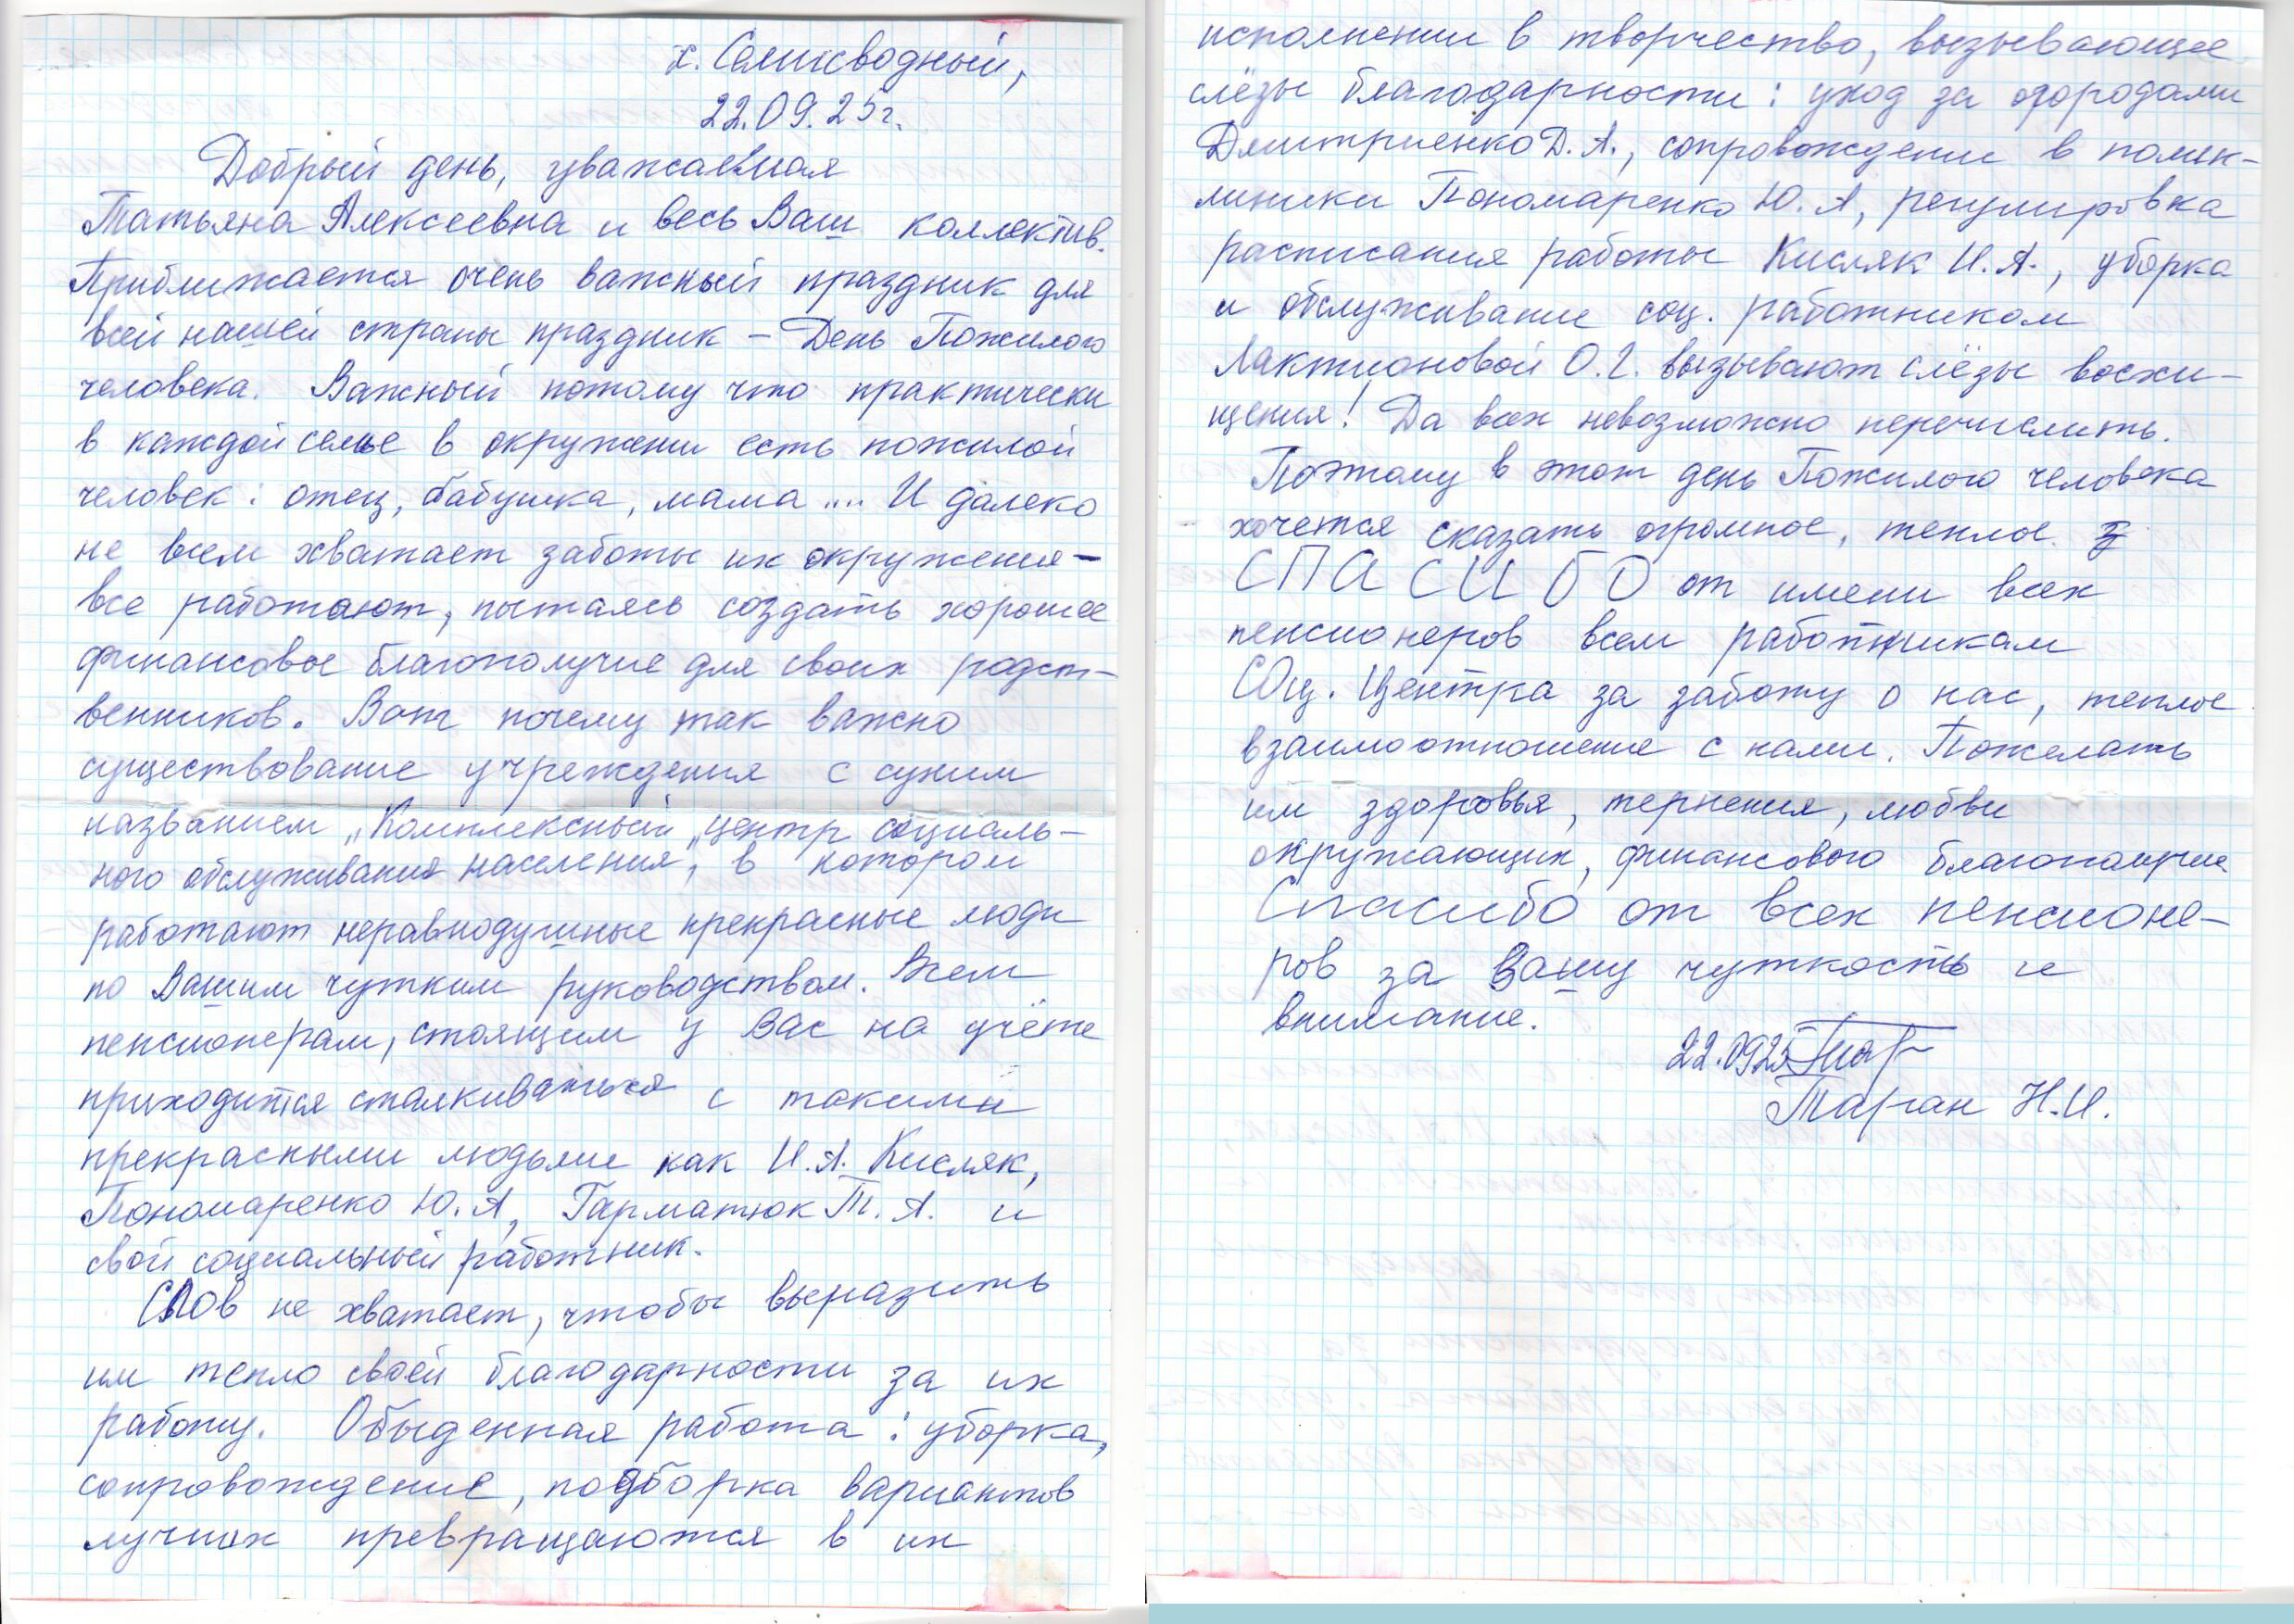 х. Семисводный,
22.09.25г.
Добрый день, уважаемая
Татьяна Алексеевна и весь Ваш коллектив.
Приближается очень важный праздник для
всей нашей страны праздник – День Пожилого
человека. Важный потому что практически
в каждой семье в окружении есть пожилой
человек: отец, бабушка, мама .... И далеко
не всем хватает заботы их окружения –
все работают, пытаясь создать хорошее
финансовое благополучие для своих родст-
венников. Вот почему так важно
существование учреждения с сухим
названием „Комплексный „центр социаль-
ного обслуживания населения", в котором
работают неравнодушные прекрасные люди
по Вашим чутким руководством. Всем
пенсионерам, стоящим у Вас на учёте
приходится сталкиваться с такими
прекрасными людьми как И.А. Кисляк,
Пономаренко Ю.А, Гарматюк Т.А. и
свой социальный работник.
Слов не хватает, чтобы выразить
им тепло своей благодарности за их
работу. Обыденная работа: уборка,
сопровождение, подборка вариантов
лучших превращаются в их
исполнении в творчество, вызывающее
слёзы благодарности: уход за огородами
Дмитриенко Д.А., сопровождение в полик-
линики Пономаренко Ю.А, регулировка
расписания работы Кисляк И.А., уборка
и обслуживание соц. работником
Лактионовой О.Г. вызывают слёзы восхи-
щения! Да всех невозможно перечислить.
Поэтому в этот день Пожилого человека
хочется сказать огромное, теплое
СПАСИБО от имени всех
пенсионеров всем работникам
Соц. Центра за заботу о нас, теплое
взаимоотношение с нами. Пожелать
им здоровья, терпения, любви
окружающих, финансового благополучия
Спасибо от всех пенсионе-
ров за Вашу чуткость и
внимание.
22.0925
Таран Н.И.